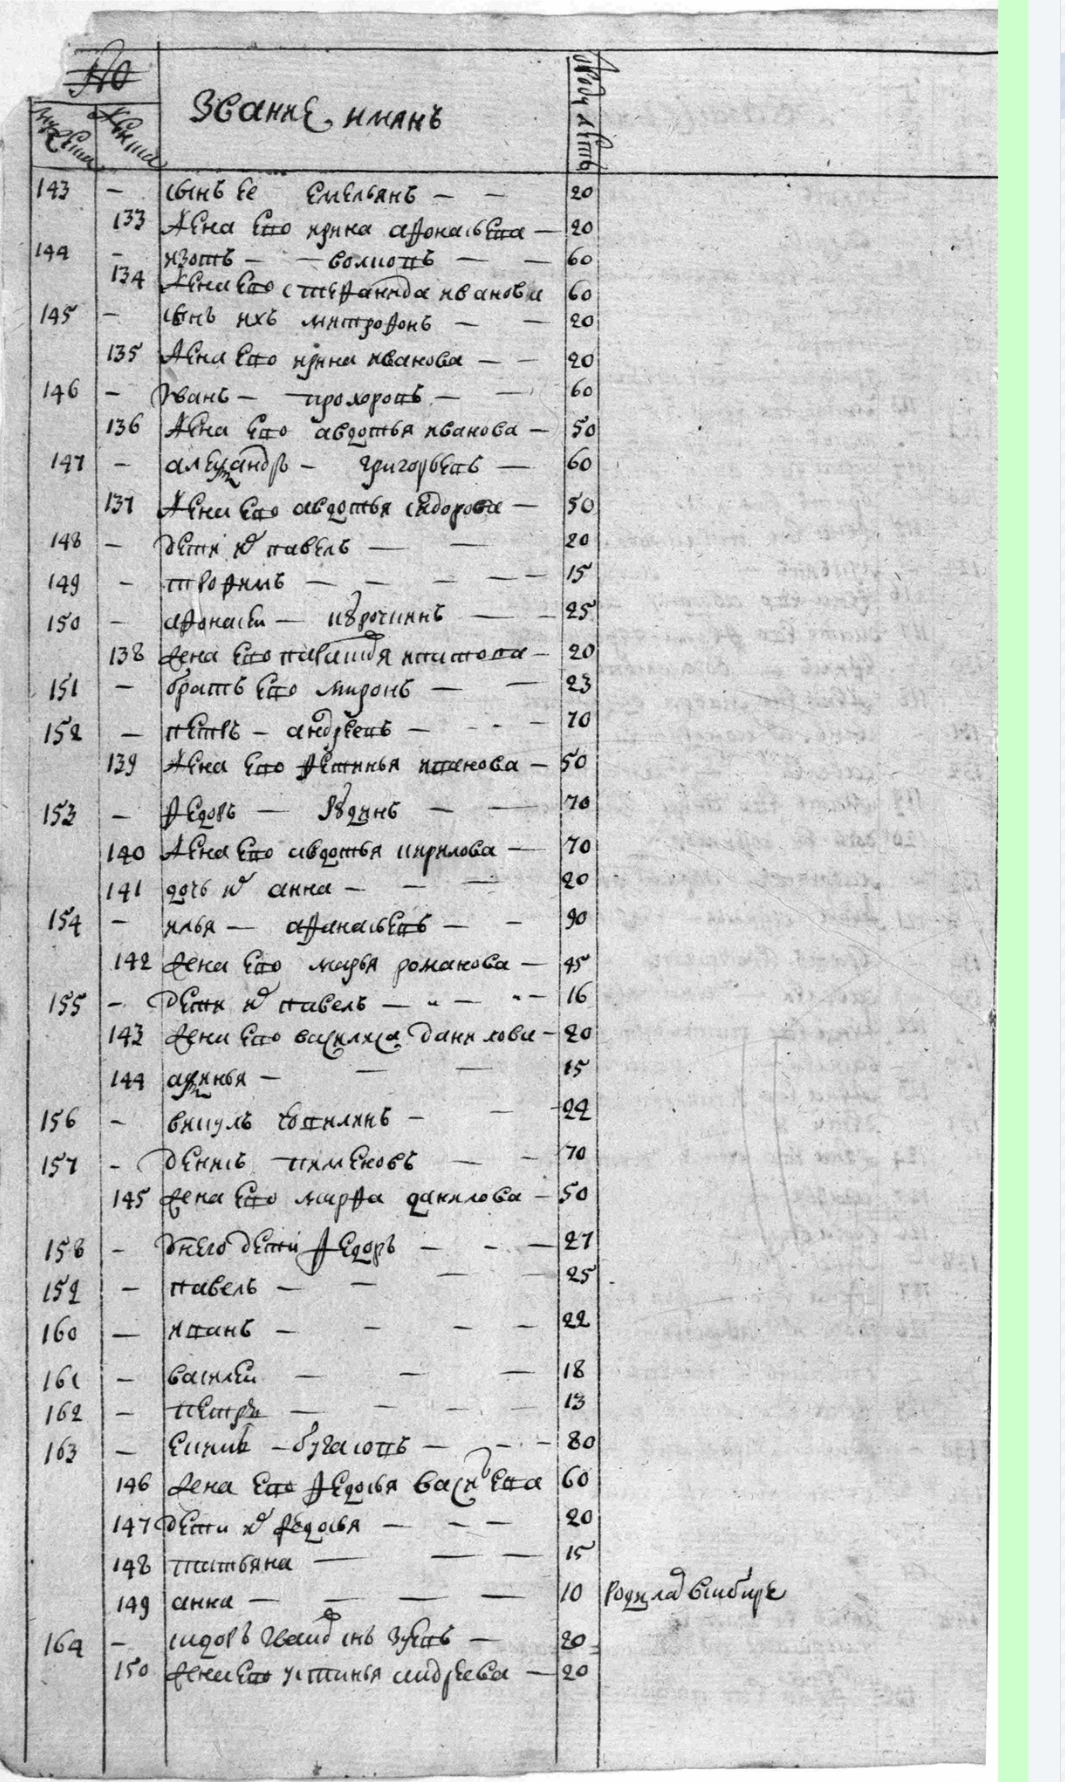 №
мужеска
женска
Звание имянъ
сколку летъ
143 – сынъ ее Емельянъ – – 20
133 жена Ево ирина афонасьева – 20
144 – изотъ – – – – 60
134 жена Ево стефанида иванова 60
145 – сынъ ихъ митрофонъ – – 20
135 жена Ево ирина иванова – – 20
146 – Иванъ – прохоровъ – – 60
136 жена Ево авдотья иванова – 50
147 – александръ – григорьевъ – 60
137 жена Ево авдотья сидорова – 50
148 – Дети их павелъ – – 20
149 – трофимъ – – – – 15
150 – афонасеи – – – 25
138 жена Ево – 20
151 – братъ Ево миронъ – – 23
152 – петръ – андреевъ – - - 70
139 жена Ево фетинья иванова – 50
153 – федоръ – – – 70
140 жена Ево авдотья кирилова – 70
141 дочь их анна – – – 20
154 – илья – афанасьевъ – – 90
142 жена Ево марья романова – 45
155 – Дети их павелъ – – – 16
143 жена Ево василиса данилова – 20
144 аксинья – – – 15
156 – викулъ – – 22
157 – Денисъ пименовъ – – 70
145 жена Ево марфа данилова – 50
158 – Унего дети федоръ – - – 27
159 – павелъ – – – – 25
160 – иванъ – – – – 22
161 – василеи – – – 18
162 – петръ – – – – 13
163 – – – - - 80
146 жена Ево федосья васильева 60
147 Дети их федосья – – – 20
148 татьяна – – – 15
149 анна – – – – 10 родилась в сибире
164 – сидоръ – 20
150 жена Ево устинья андреева – 20